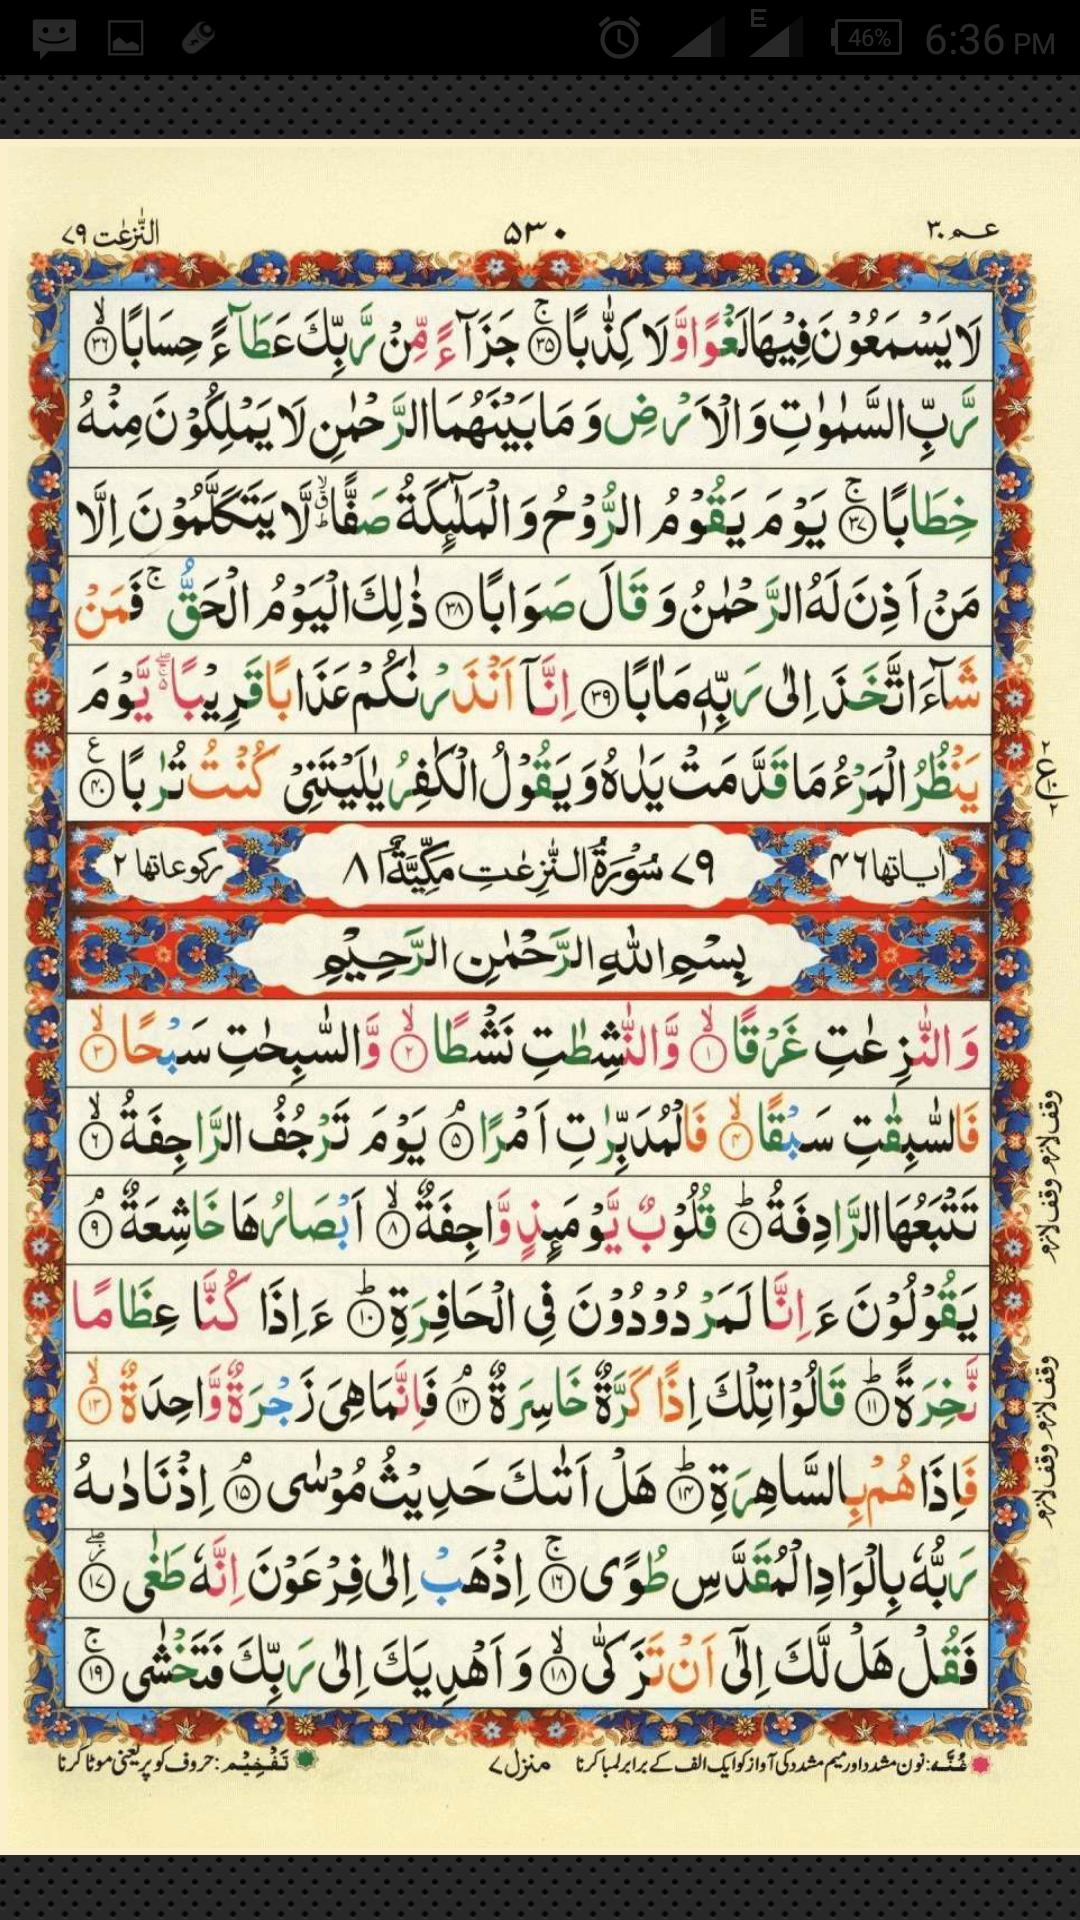 46%
6:36 PM
عـم ٣٠
٥٣٠
النّٰزِعٰت ٧٩
لَا يَسْمَعُوْنَ فِيْهَا لَغْوًا وَّ لَا كِذّٰبًا ۚ‏﴿۳۵﴾ جَزَآءً مِّنْ رَّبِّكَ عَطَآءً حِسَابًا ۙ‏﴿۳۶﴾
رَّبِّ السَّمٰوٰتِ وَ الْاَرْضِ وَ مَا بَيْنَهُمَا الرَّحْمٰنِ لَا يَمْلِكُوْنَ مِنْهُ
خِطَابًا ۚ‏﴿۳۷﴾ يَوْمَ يَقُوْمُ الرُّوْحُ وَ الْمَلٰٓئِكَةُ صَفًّا ۙۗ لَّا يَتَكَلَّمُوْنَ اِلَّا
مَنْ اَذِنَ لَهُ الرَّحْمٰنُ وَ قَالَ صَوَابًا ﴿۳۸﴾ ذٰلِكَ الْيَوْمُ الْحَقُّ ۚ فَمَنْ
شَآءَ اتَّخَذَ اِلٰى رَبِّهٖ مَاٰبًا ﴿۳۹﴾ اِنَّاۤ اَنْذَرْنٰكُمْ عَذَابًا قَرِيْبًا ۖۚ يَّوْمَ
يَنْظُرُ الْمَرْءُ مَا قَدَّمَتْ يَدٰهُ وَ يَقُوْلُ الْكٰفِرُ يٰلَيْتَنِيْ كُنْتُ تُرٰبًا ﴿۴۰﴾ ع
اٰيَاتها ٤٦
٧٩ سُوْرَةُ النّٰزِعٰتِ مَكِّيَّةٌ ٨١
ركوعاتها ٢
بِسْمِ اللّٰهِ الرَّحْمٰنِ الرَّحِيْمِ
وَ النّٰزِعٰتِ غَرْقًا ۙ‏﴿۱﴾ وَّ النّٰشِطٰتِ نَشْطًا ۙ‏﴿۲﴾ وَّ السّٰبِحٰتِ سَبْحًا ۙ‏﴿۳﴾
فَالسّٰبِقٰتِ سَبْقًا ۙ‏﴿۴﴾ فَالْمُدَبِّرٰتِ اَمْرًا ۘ‏﴿۵﴾ يَوْمَ تَرْجُفُ الرَّاجِفَةُ ۙ‏﴿۶﴾
تَتْبَعُهَا الرَّادِفَةُ ؕ‏﴿۷﴾ قُلُوْبٌ يَّوْمَئِذٍ وَّاجِفَةٌ ۙ‏﴿۸﴾ اَبْصَارُهَا خَاشِعَةٌ ۘ‏﴿۹﴾
يَقُوْلُوْنَ ءَاِنَّا لَمَرْدُوْدُوْنَ فِي الْحَافِرَةِ ؕ‏﴿۱۰﴾ ءَاِذَا كُنَّا عِظَامًا
نَّخِرَةً ؕ‏﴿۱۱﴾ قَالُوْا تِلْكَ اِذًا كَرَّةٌ خَاسِرَةٌ ۘ‏﴿۱۲﴾ فَاِنَّمَا هِيَ زَجْرَةٌ وَّاحِدَةٌ ۙ‏﴿۱۳﴾
فَاِذَا هُمْ بِالسَّاهِرَةِ ؕ‏﴿۱۴﴾ هَلْ اَتٰىكَ حَدِيْثُ مُوْسٰى ۘ‏﴿۱۵﴾ اِذْ نَادٰىهُ
رَبُّهٗ بِالْوَادِ الْمُقَدَّسِ طُوًى ۚ‏﴿۱۶﴾ اِذْهَبْ اِلٰى فِرْعَوْنَ اِنَّهٗ طَغٰى ۖ‏﴿۱۷﴾
فَقُلْ هَلْ لَّكَ اِلٰٓى اَنْ تَزَكّٰى ۙ‏﴿۱۸﴾ وَ اَهْدِيَكَ اِلٰى رَبِّكَ فَتَخْشٰى ۚ‏﴿۱۹﴾
وقف لازم
وقف لازم
وقف لازم
وقف لازم
غُنَّه: نون مشدد اور میم مشدد کی آواز کو ایک الف کے برابر لمبا کرنا
منزل ٧
تَفْخِيْم: حروف کو پُر یعنی موٹا کرنا